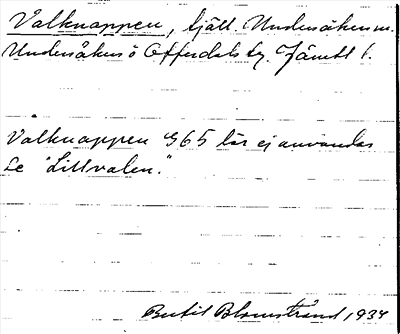 Valknappen, fjäll. Undersåkers sn.
Undersåkers o Offerdals tg. Jämtl l.
Valknappen 965 lär ej användas
Se "Lillvalen."
Bertil Blomstrand 1934